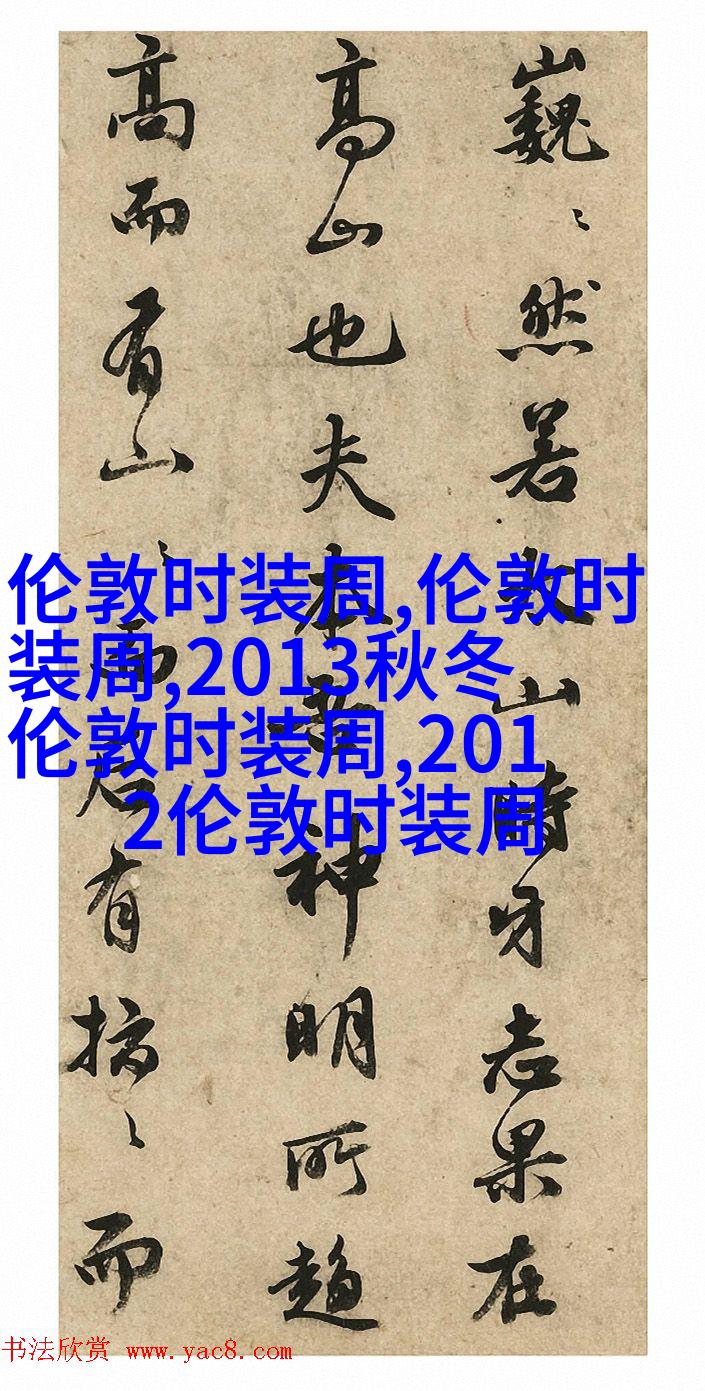 巍〻然若山時牙志果在
高山也夫神明所趨
高而有山〻而有〻而
伦敦时装周,伦敦时
装周,2013秋冬
伦敦时装周,201
2伦敦时装周
书法欣赏 www.yac8.com